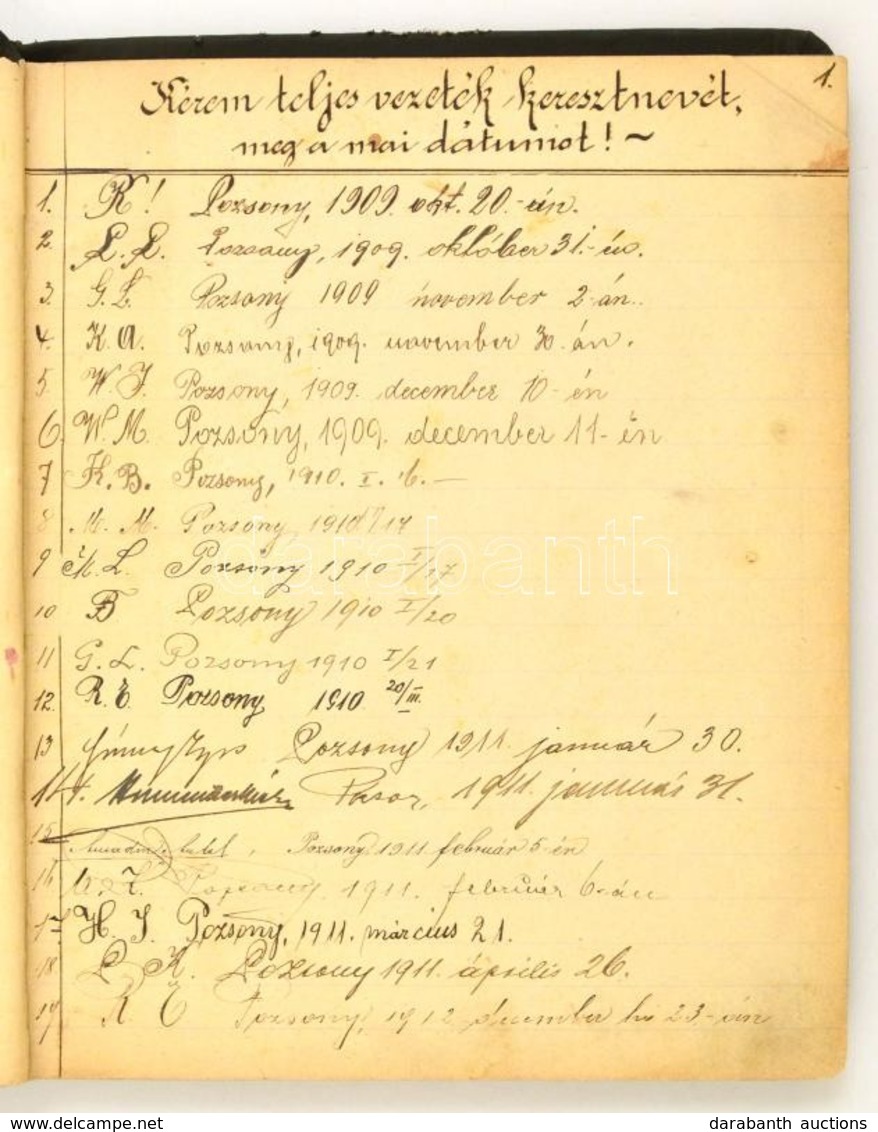 1.
Kérem teljes vezeték keresztnevét,
meg a mai dátumot! ~
1. K! Pozsony, 1909. okt. 20.-án.
2. L. L. Pozsony, 1909. október 31.-én.
3. G. L. Pozsony 1909 november 2-án.
4. K. A. Pozsony, 1909. november 30.-án.
5. W. J. Pozsony, 1909. december 10-én
6. W. M. Pozsony, 1909. december 11-én
7 K. B. Pozsony, 1910. I. 16.—
8 M. M. Pozsony 1910 I/17
9 M. L. Pozsony 1910 I/17
10 B Pozsony 1910 I/20
11 G. L. Pozsony 1910 I/21
12. R. E. Pozsony 1910 20/III.
13 Pozsony 1911. január 30.
14. 1911. január 31.
15 Pozsony 1911 február 5-én
16 Pozsony. 1911. február 6-án
17 H. J. Pozsony, 1911. március 21.
18 P. K. Pozsony 1911. április 26.
19 K E Pozsony, 1912 december hó 23-án
darabanth
www.delcampe.net
darabanth auctions